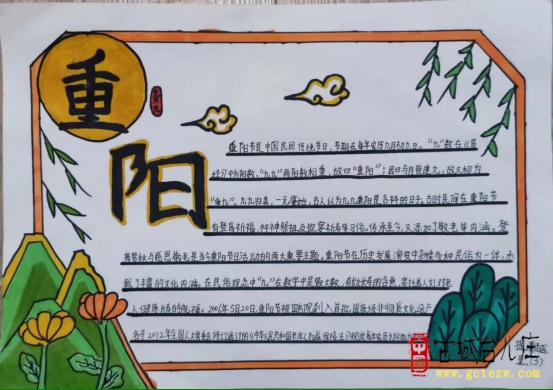 重
阳
重阳节是中国民间传统节日,节期在每年农历九月初九日。"九"数在《易
经》中为阳数,"九九"两阳数相重,故曰"重阳";因日与月皆逢九,故又称为
"重九"。九九归真,一元肇始,古人认为九九重阳是吉祥的日子。古时民间在重阳节
有登高祈福、拜神祭祖及饮宴祈寿等习俗。传承至今,又添加了敬老等内涵。登
高赏秋与感恩敬老是当今重阳节日活动的两大重要主题。重阳节在历史发展演变中杂糅多种民俗为一体,承
载了丰富的文化内涵。在民俗观念中"九"在数字中是最大数,有长久长寿的含意,寄托着人们对老
人健康长寿的祝福。2006年5月20日,重阳节被国务院列入首批国家级非物质文化遗产
名录 2012年
古城台儿庄
www.gctezw.com